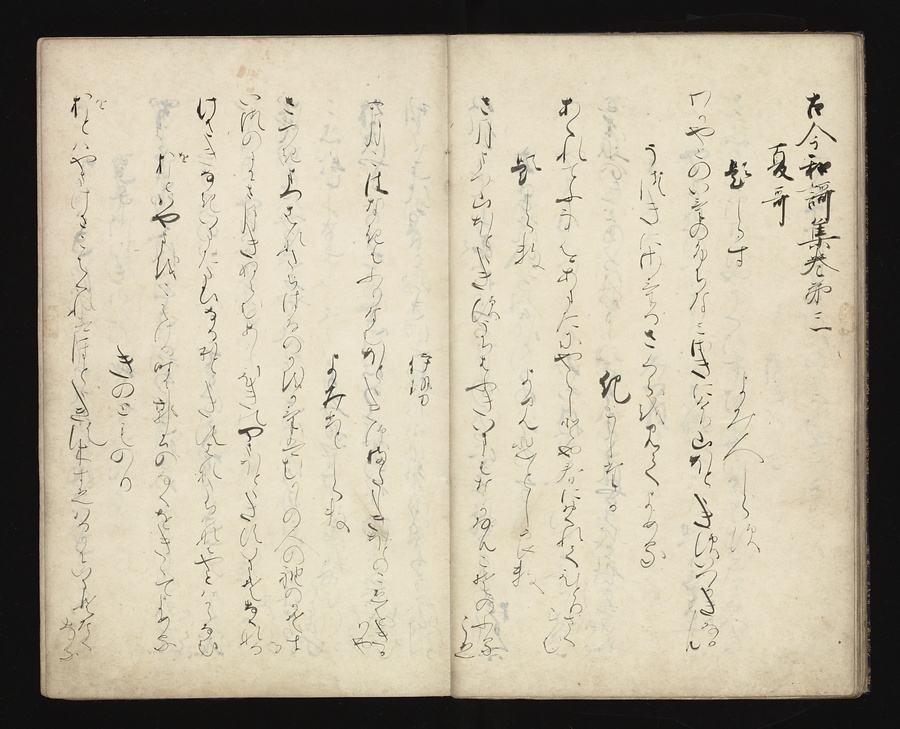 古今和謌集巻第三
夏哥
題しらす
よみ人しらす
わかやとのいけのふちなみさきにけり山ほとゝきすいつかきなかむ
う月にさけるさくらをみてよめる
紀としさた
あはれてふことをあまたにやらしとや春にをくれてひとりさくらむ
題しらす　よみ人しらす
さ月まつ山ほとゝきすうちはふきいまもなかなんこそのふるこゑ
伊勢
五月こはなきもふりなむほとゝきすまたしきほとのこゑをきかはや
よみ人しらす
さつきまつ花たちはなのかをかけはむかしの人の袖のかそする
いつのまにさ月きぬらむあしひきのやまほとゝきすいまそなくなる
けさきなきいまたたひなるほとゝきす花たちはなにやとはからなむ
おとはやまをこえける時に郭公のなくをきゝてよめる
きのとものり
おとはやまけさこえくれはほとゝきすこすゑはるかにいまそなくなる